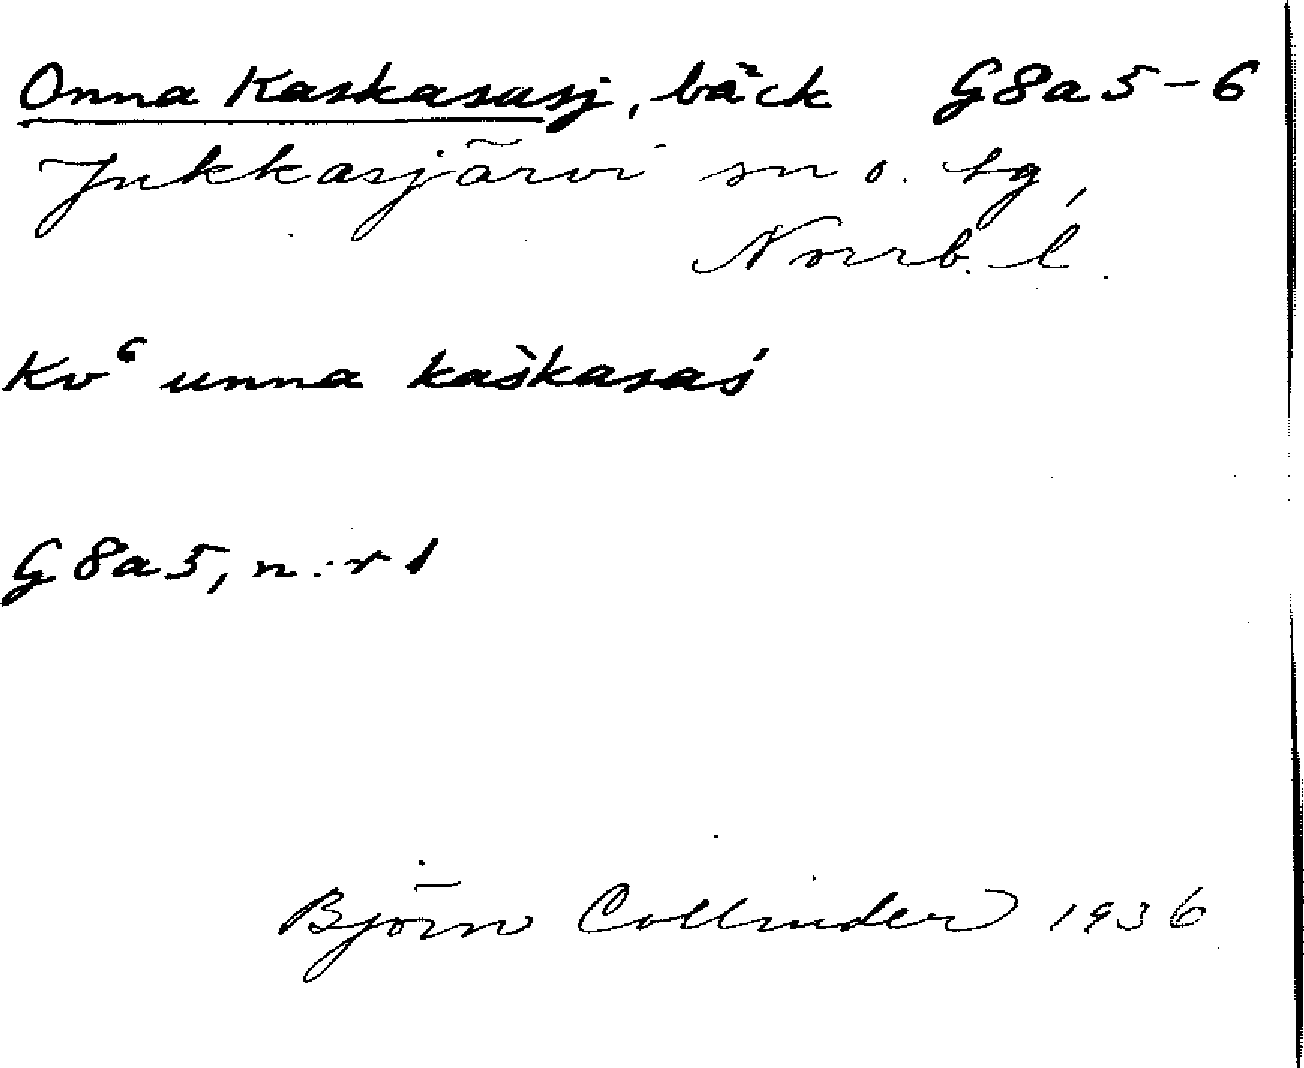 Onna Kaskasasj, bäck G8a5-6
Jukkasjärvi sn o. tg,
Norrb. l.
Kv⁶ unna kaškasaś
G8a5, n:r 1
Björn Collinder 1936